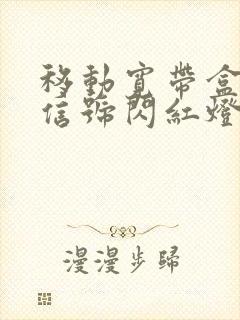 移動寬帶盒
信號閃紅燈
漫漫步歸